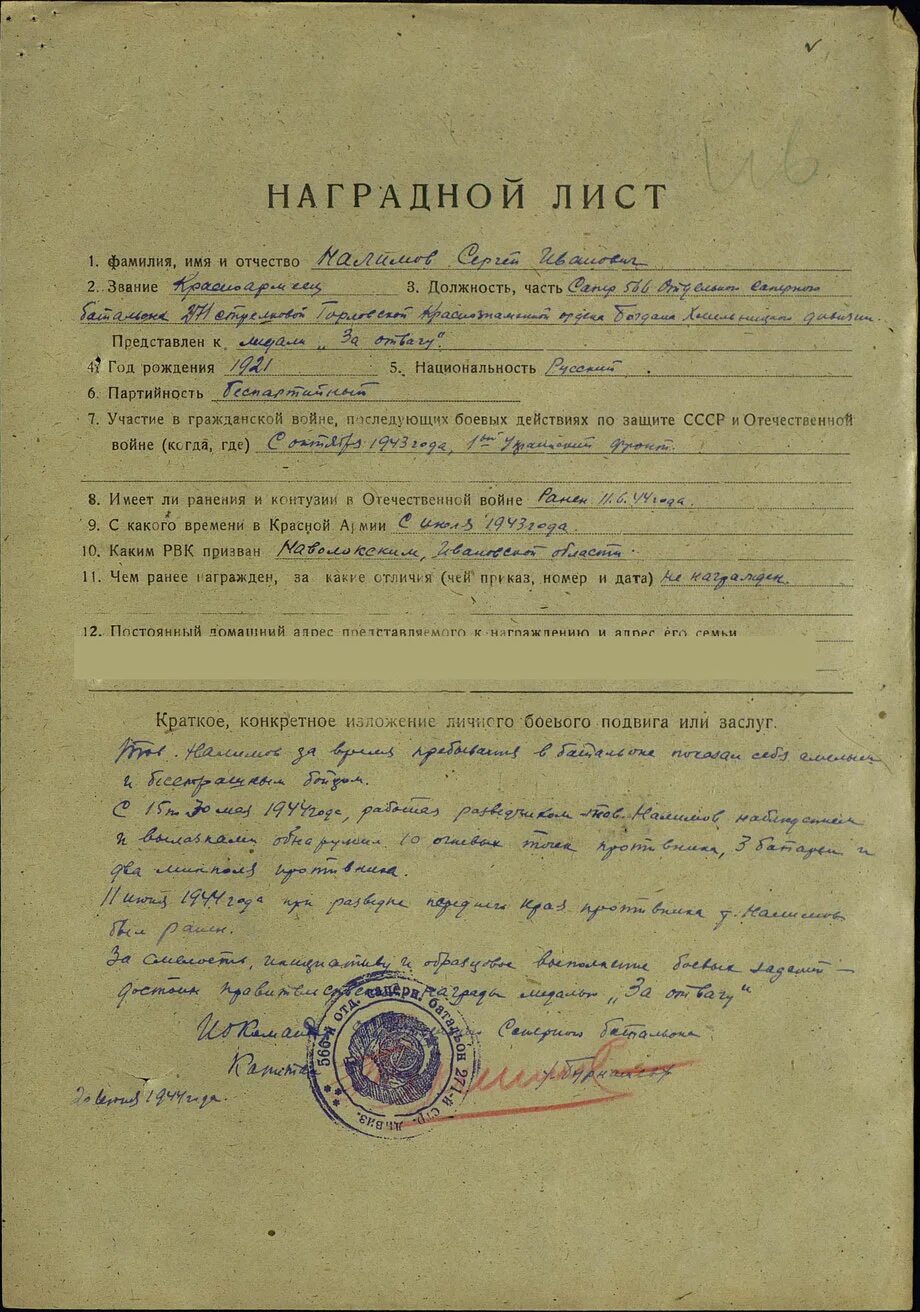 НАГРАДНОЙ ЛИСТ
1. фамилия, имя и отчество Налимов Сергей Иванович
2. Звание Красноармеец 3. Должность, часть Сапер 566 Отдельного саперного
батальона 271 стрелковой Горловской Краснознаменной ордена Богдана Хмельницкого дивизии.
Представлен к медали „За отвагу“.
4. Год рождения 1921 5. Национальность Русский.
6. Партийность беспартийный
7. Участие в гражданской войне, последующих боевых действиях по защите СССР и Отечественной
войне (когда, где) С октября 1943 года, 1ый Украинский фронт.
8. Имеет ли ранения и контузии в Отечественной войне Ранен 11.6.44 года.
9. С какого времени в Красной Армии С июля 1943 года.
10. Каким РВК призван Наволокским, Ивановской области.
11. Чем ранее награжден, за какие отличия (чей приказ, номер и дата) не награжден.
12. Постоянный домашний адрес представляемого к награждению и адрес его семьи
Краткое, конкретное изложение личного боевого подвига или заслуг.
Тов. Налимов за время пребывания в батальоне показал себя смелым
и бесстрашным бойцом.
С 15 по 30 мая 1944 года, работая разведчиком тов. Налимов наблюдением
и вылазками обнаружил 10 огневых точек противника, 3 батареи и
два минполя противника.
11 июня 1944 года при разведке переднего края противника т. Налимов
был ранен.
За смелость, инициативу и образцовое выполнение боевых заданий –
достоин правительственной награды медалью „За отвагу“
Саперного батальона
566-й отд. саперн. батальон 271-й стр. дивиз.
20 июня 1944 года.